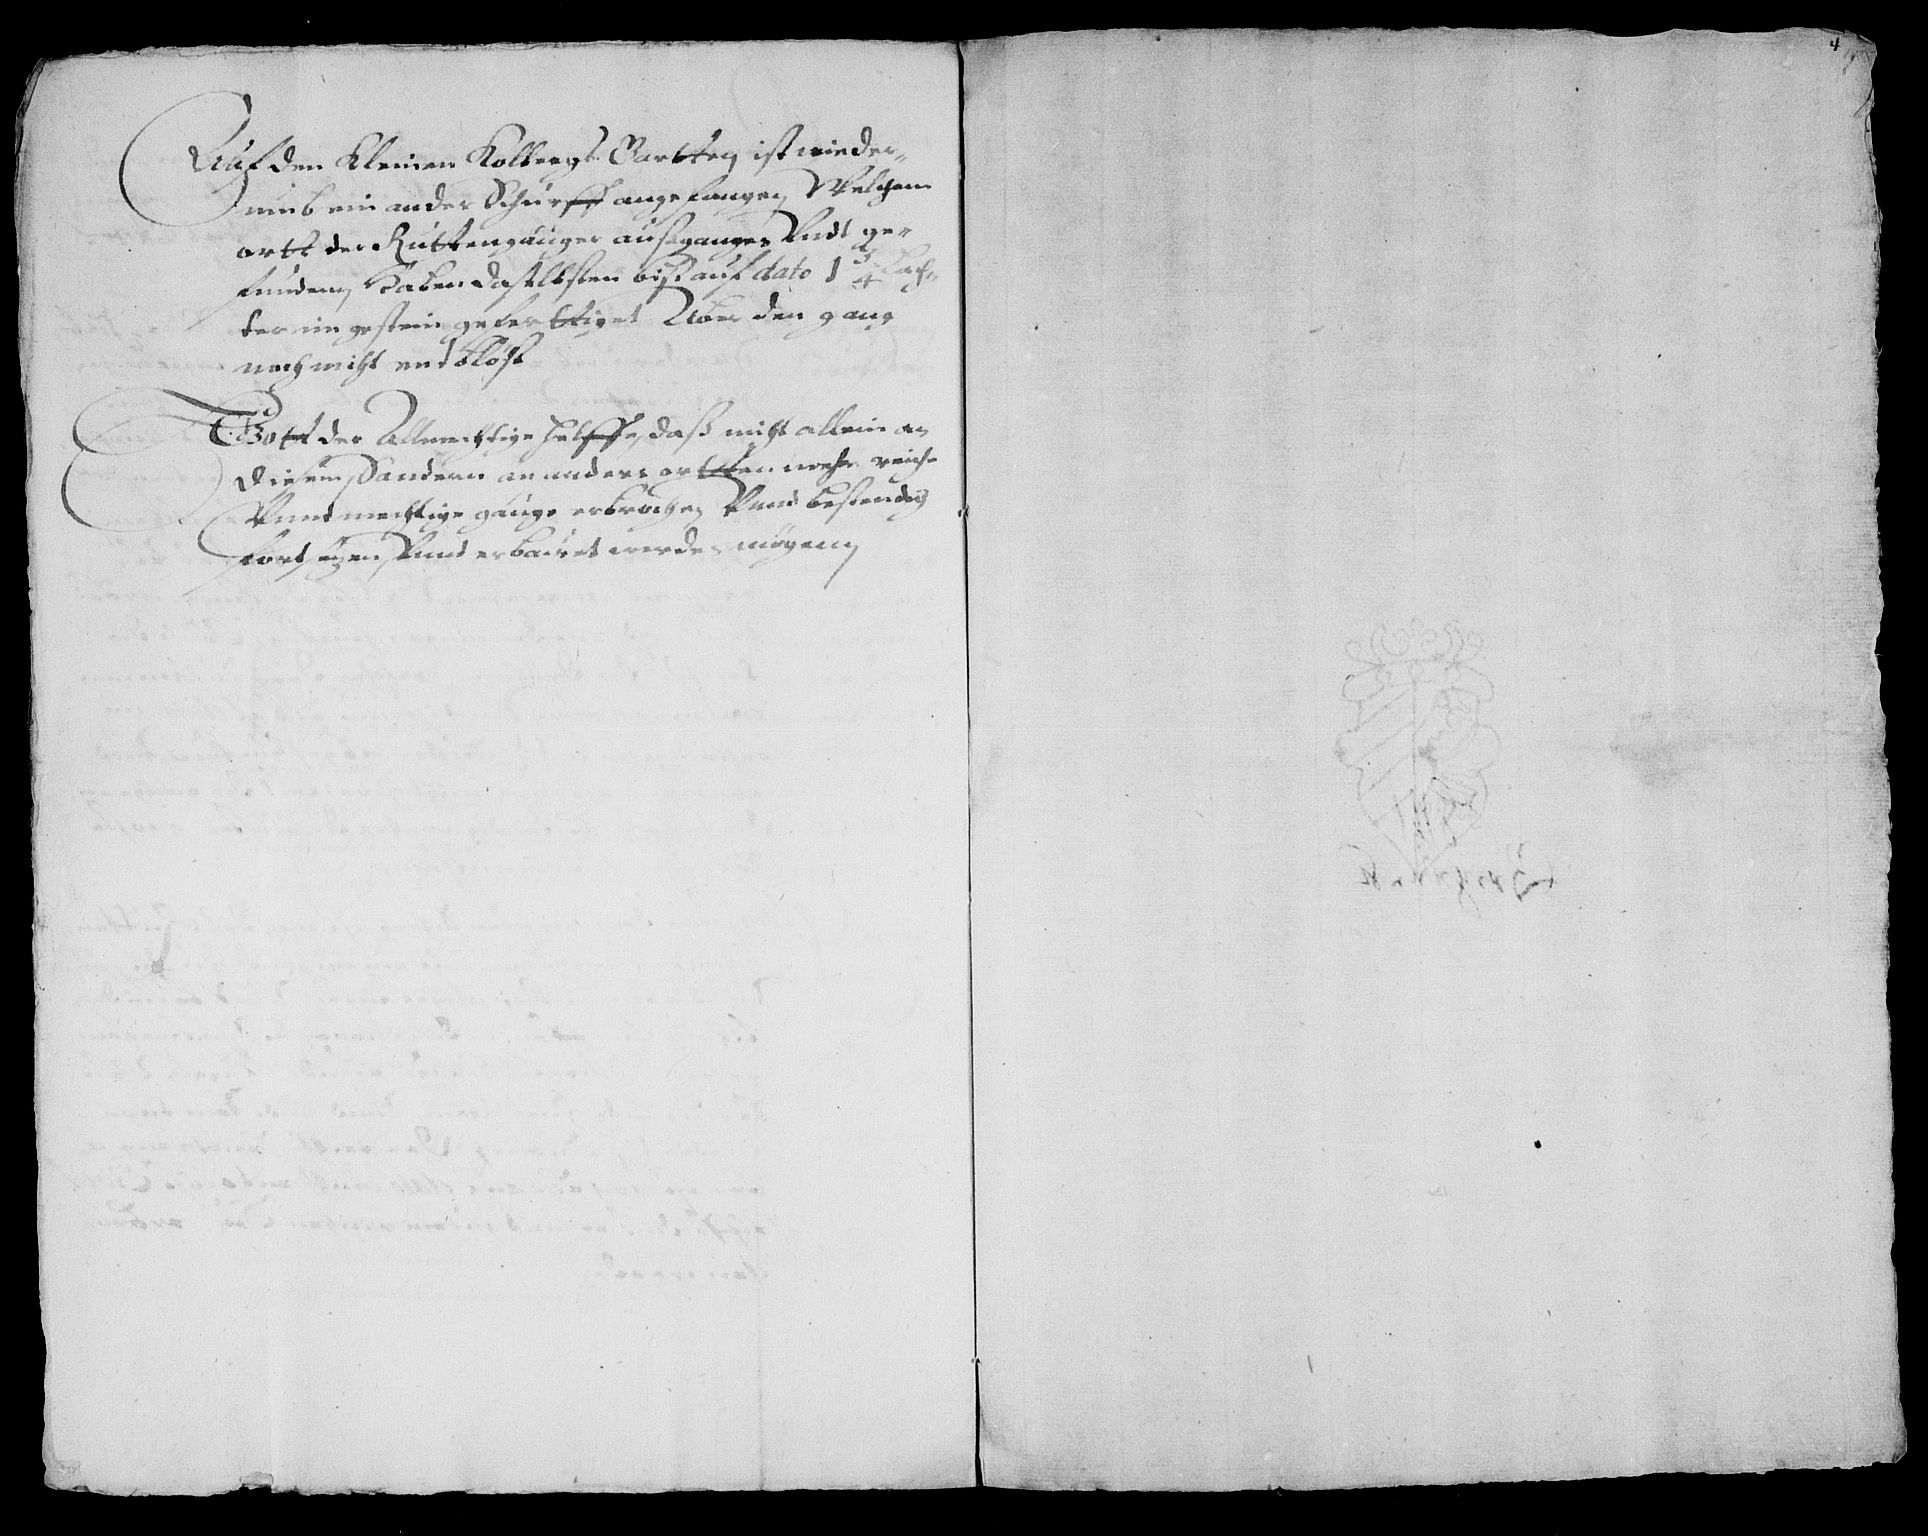 4
Auf den Kleinen Kolbergs Gartten ist wieder¬
umb ein ander Schurff angefangen, Welchem
ortt der Ruttengänger aussgangen Vndt ge¬
funden, Haben daselbsten biss auf dato 1 3/4 Lach¬
ter im gestein gefertttiget Aber den gang
noch nicht endtblöst
Gott der Allmechtige helffe, dass nicht allein an
diesem, Sondern an andern ortten mehr reiche
Vnnd mechtige gänge erbrochen, Vnnd bestendig
fortsezen, Vnnd erbauet werden mögen,